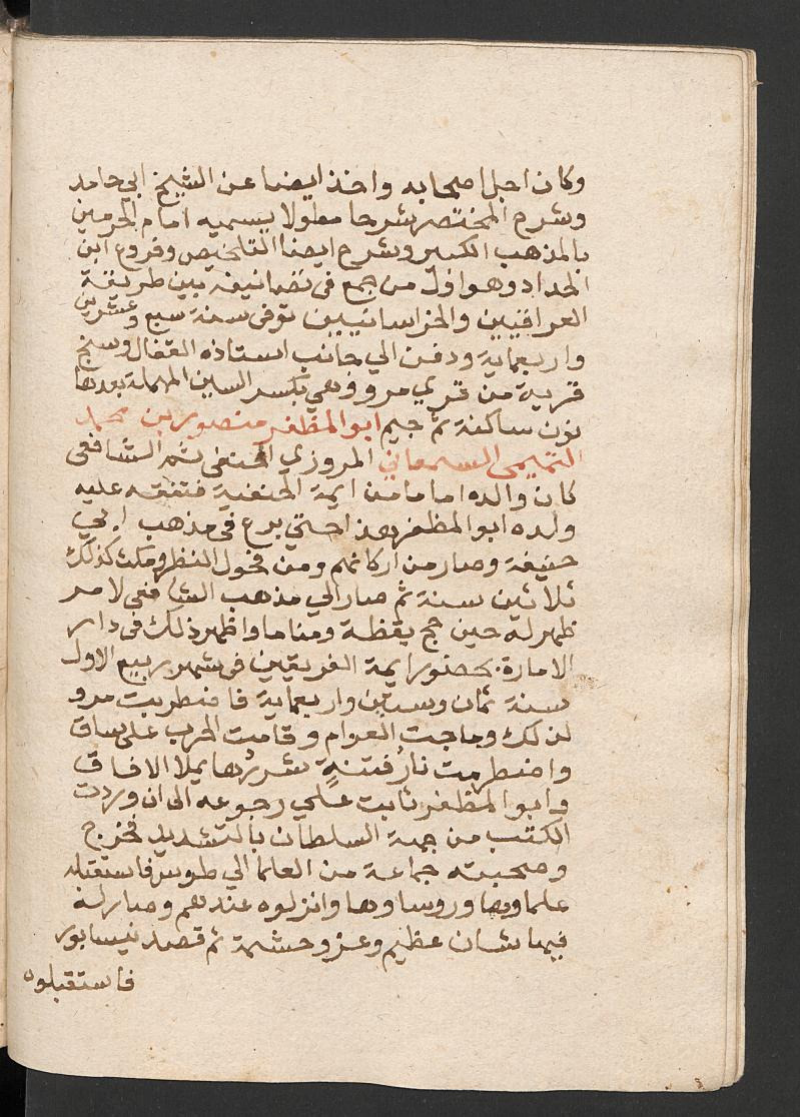 وكان اجل اصحابه واخذ ايضا عن الشيخ ابي حامد
وشرح المختصر شرحا مطولا يسميه امام الحرمين
بالمذهب الكبير وشرح ايضا التلخيص وفروع ابن
الحداد وهو اول من جمع في تصانيفه بين طريقة
العراقيين والخراسانيين توفى سنة سبع وعشرين
واربعماية ودفن الي جانب استاذه القفال وسنج
قرية من قري مرو وهي بكسر السين المهملة بعدها
نون ساكنة ثم جيم ابو المظفر منصور بن محمد
التميمى السمعاني المروزي الحنفى ثم الشافعى
كان والده اماما من ايمة الحنفية فتفقه عليه
ولده ابو المظفر هذا حتي برع في مذهب ابي
حنيفة وصار من اركانهم ومن فحول النظر ومكث كذلك
ثلاثين سنة ثم صار الي مذهب الشافعى لامر
ظهر له حين حج يقظة ومناما واظهر ذلك في دار
الامارة بحضور ايمة الفريقين في شهر ربيع الاول
سنة ثمان وستين واربعماية فاضطربت مرو
لذلك وماجت العوام وقامت الحرب على ساق
واضطرمت نار فتنةٍ شررُها يملا الافاق
وابو المظفر ثابت علي رجوعه الى ان وردت
الكتب من جهة السلطان بالتشديد فخرج
وصحبته جماعة من العلما الي طوس فاستقبله
علماوها وروساوها وانزلوه عندهم وصار له
فيها شان عظيم وعز وحشمة ثم قصد نيسابور
فاستقبلوه